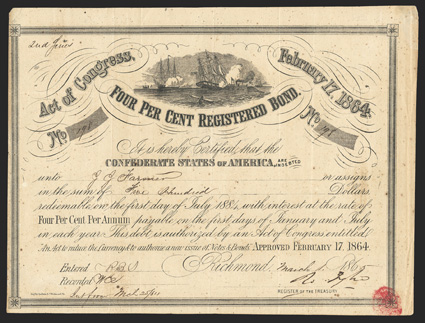 2nd Series
Act of Congress, February 17, 1864.
FOUR PER CENT REGISTERED BOND.
No 191 No 191
It is hereby Certified, that the
CONFEDERATE STATES OF AMERICA, ARE INDEBTED
unto J J Farmer or assigns
in the sum of Five Hundred Dollars
redeemable on the first day of July 1885, with interest at the rate of
Four Per Cent Per Annum payable on the first days of January and July
in each year. This debt is authorized by an Act of Congress entitled
An Act to reduce the Currency & to authorize a new issue of Notes & Bonds APPROVED FEBRUARY 17, 1864.
Richmond, March 1, 1865
Entered
Recorded
REGISTER OF THE TREASURY
Int from